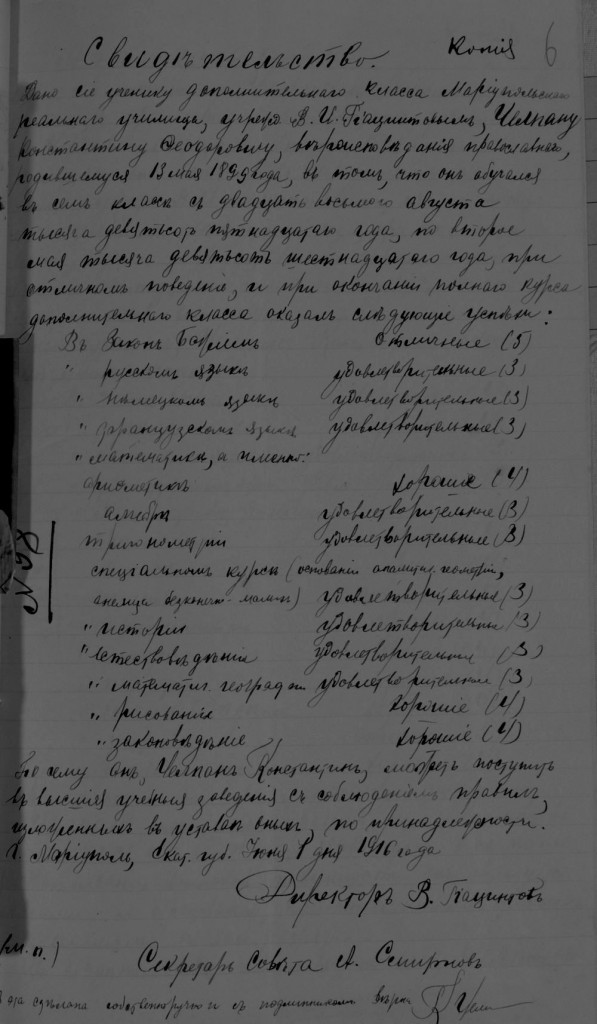 Копія
6
Свидѣтельство.
Дано сіе ученику дополнительнаго класса Маріупольскаго
реальнаго училища, учрежд. В. И. Гіацинтовымъ, Челпану
Константину Ѳеодоровичу, вѣроисповѣданія православнаго,
родившемуся 13 мая 1899 года, въ томъ, что онъ обучался
въ семъ классѣ съ двадцать восьмого августа
тысяча девятьсотъ пятнадцатаго года, по второе
мая тысяча девятьсотъ шестнадцатаго года, при
отличномъ поведеніи, и при окончаніи полнаго курса
дополнительнаго класса оказалъ слѣдующіе успѣхи:
Въ Законѣ Божіемъ отличные (5)
" русскомъ языкѣ удовлетворительные (3)
" нѣмецкомъ языкѣ удовлетворительные (3)
" французскомъ языкѣ удовлетворительные (3)
" математикѣ, а именно:
ариѳметикѣ хорошіе (4)
алгебрѣ удовлетворительные (3)
тригонометріи удовлетворительные (3)
спеціальномъ курсѣ (основаніи аналитич. геометріи,
анализа безконечн. малыхъ) удовлетворительные (3)
" исторіи удовлетворительные (3)
" естествовѣдѣніи удовлетворительные (3)
" математич. географіи удовлетворительные (3)
" рисованіи хорошіе (4)
" законовѣдѣніе хорошіе (4)
По сему онъ, Челпанъ Константинъ, можетъ поступить
въ высшія учебныя заведенія съ соблюденіемъ правилъ,
изложенныхъ въ уставахъ оныхъ, по принадлежности.
г. Маріуполь, Екат. губ. Іюня 1 дня 1916 года
Директоръ В. Гіацинтовъ
(м.п.)
Секретарь Совѣта А. Смирновъ
сдѣлана собственноручно и съ подлинникомъ вѣрна
№ 98